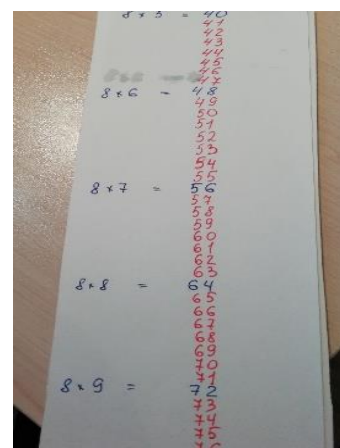 8 × 5 = 40
41
42
43
44
45
46
47
8 × 6 = 48
49
50
51
52
53
54
55
8 × 7 = 56
57
58
59
60
61
62
63
8 × 8 = 64
65
66
67
68
69
70
71
8 × 9 = 72
73
74
75